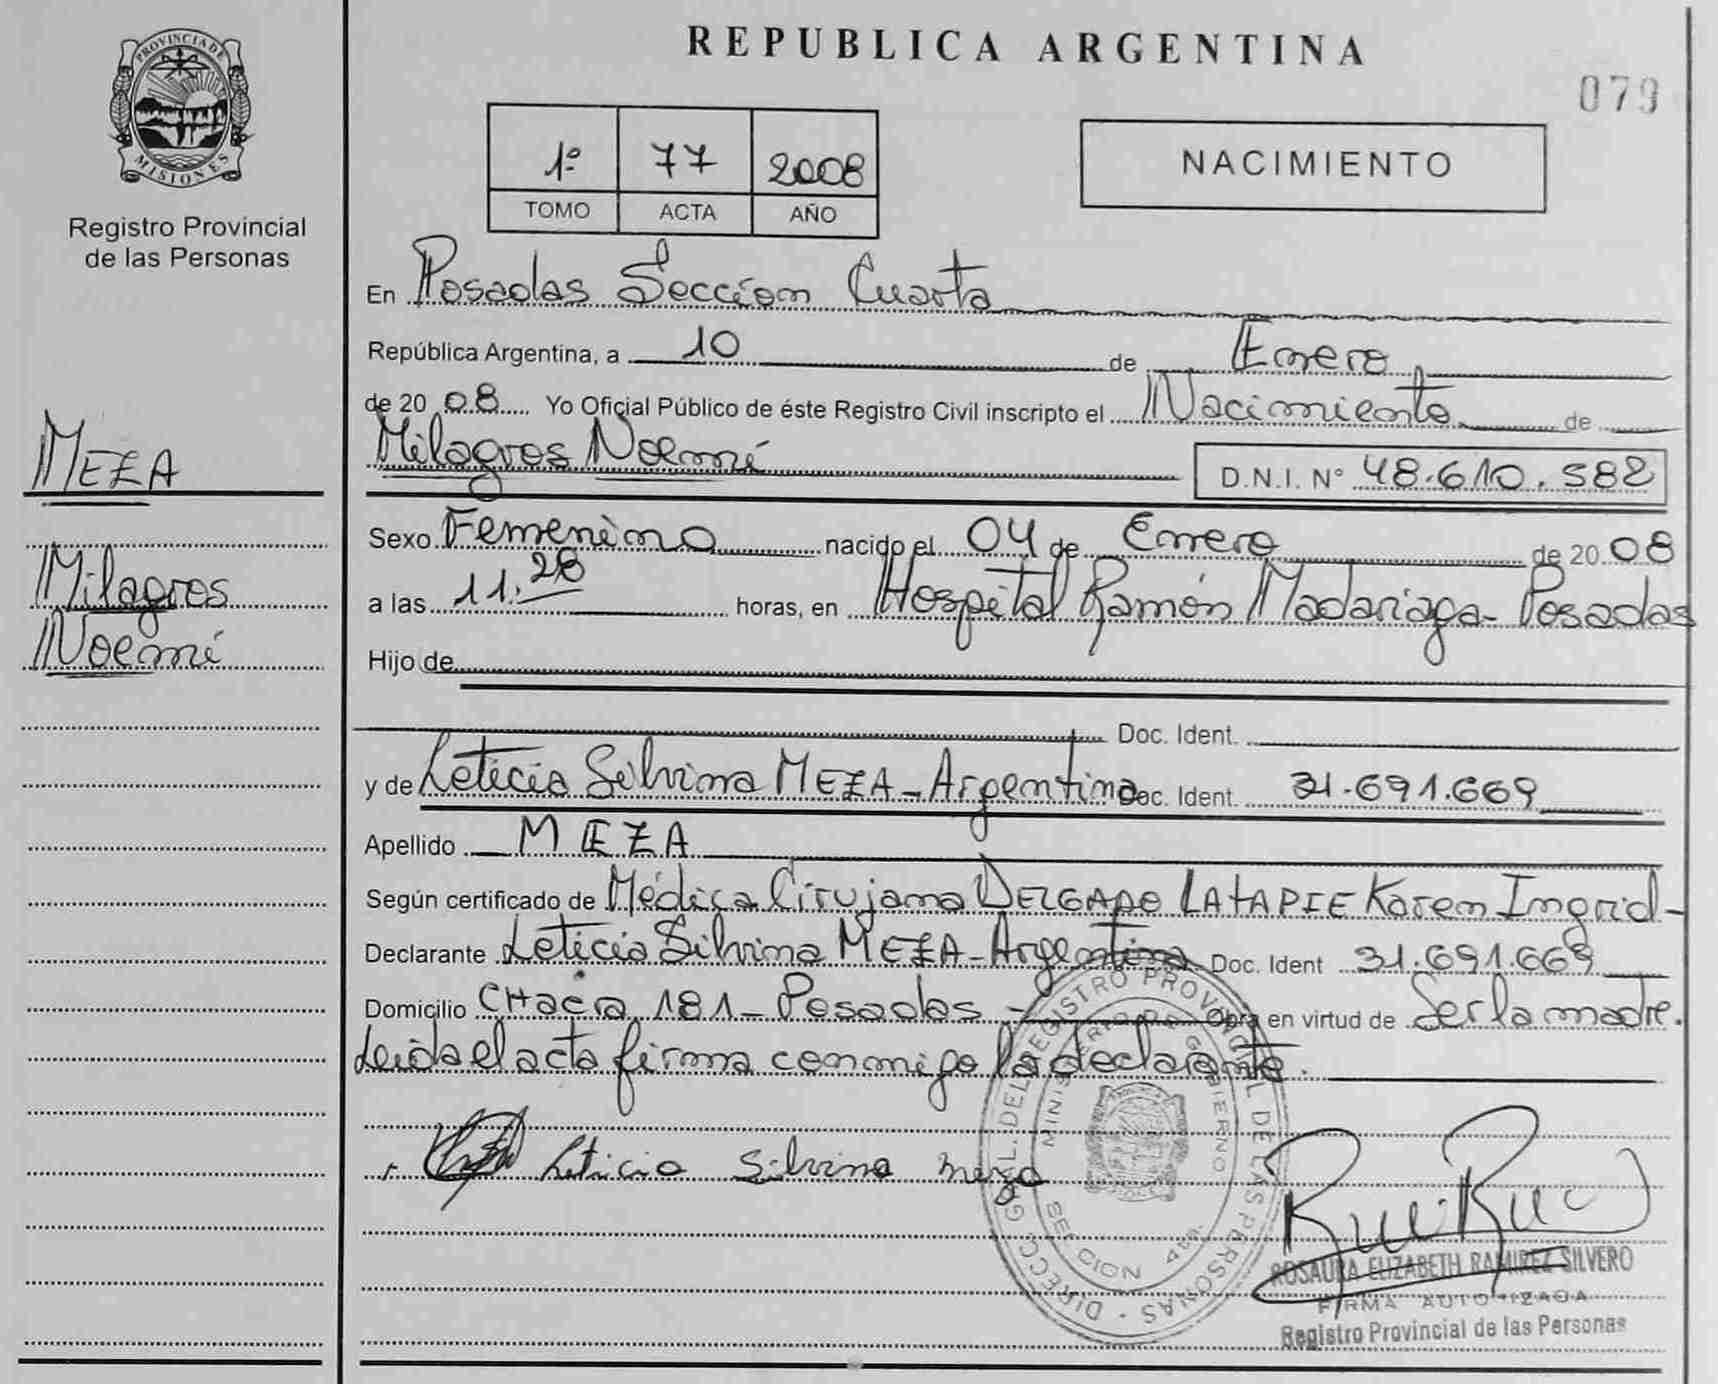 REPUBLICA ARGENTINA
079
PROVINCIA DE
MISIONES
Registro Provincial
de las Personas
1º 77 2008
TOMO ACTA AÑO
NACIMIENTO
En Posadas Sección Cuarta
República Argentina, a 10 de Enero
de 2008 Yo Oficial Público de éste Registro Civil inscripto el Nacimiento de
Milagros Noemí D.N.I. Nº 48.610.582
MEZA
Milagros
Noemí
Sexo Femenino nacido el 04 de Enero de 2008
a las 11:28 horas, en Hospital Ramón Madariaga - Posadas
Hijo de
Doc. Ident.
y de Leticia Silvina MEZA - Argentina Doc. Ident. 31.691.669
Apellido MEZA
Según certificado de Médica Cirujana DELGADO LATAPIE Karem Ingrid -
Declarante Leticia Silvina MEZA - Argentina Doc. Ident 31.691.669
Domicilio CHacra 181 - Posadas - Obra en virtud de Ser la madre.
Leida el acta firma conmigo la declarante.
Leticia Silvina meza
DIRECC. GRAL. DEL REGISTRO PROVINCIAL DE LAS PERSONAS
MINISTERIO DE GOBIERNO
SECCION 4ta.
ROSAURA ELIZABETH RAMIREZ SILVERO
FIRMA AUTORIZADA
Registro Provincial de las Personas